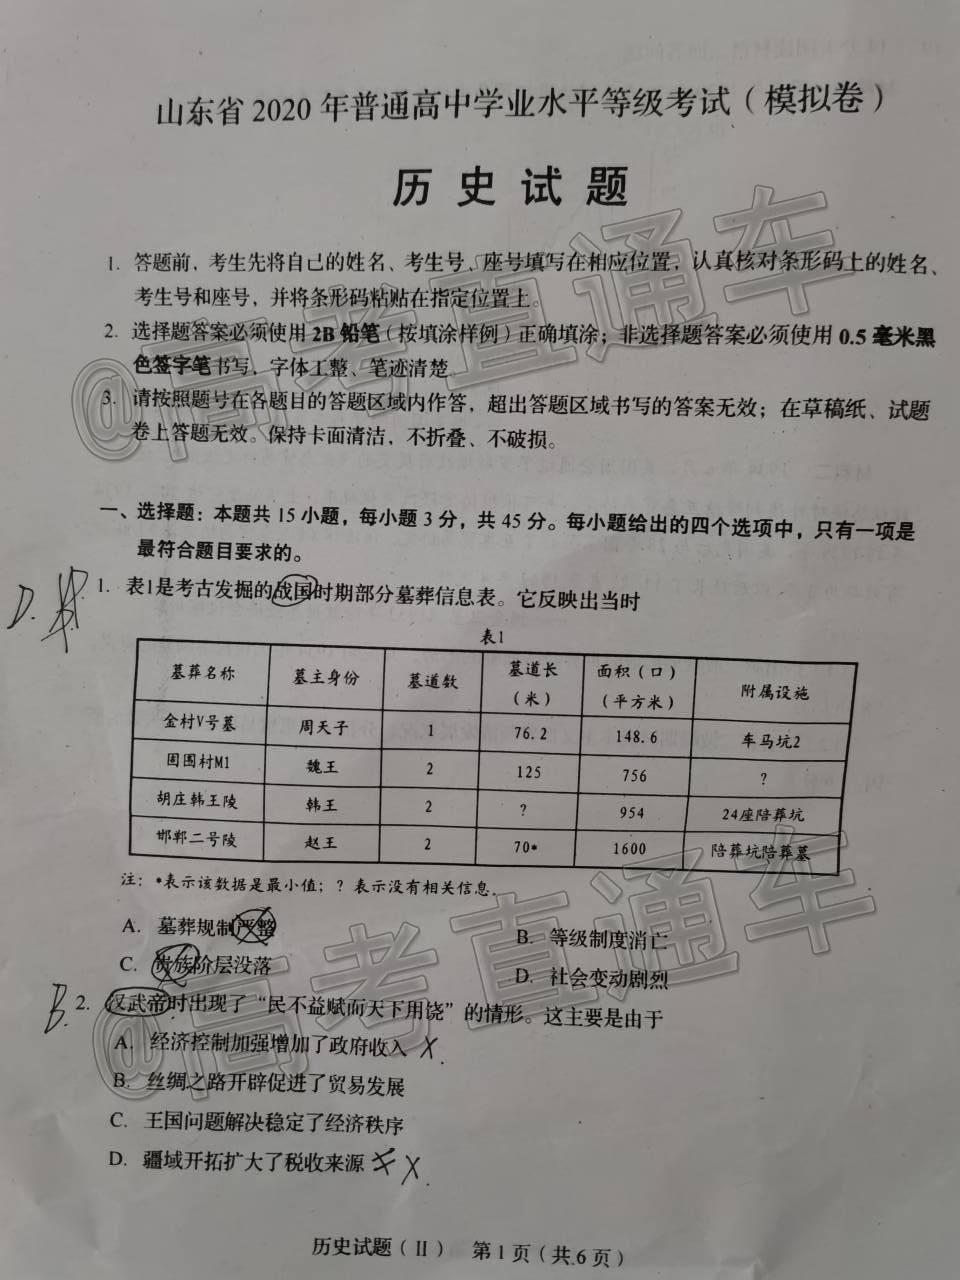 山东省2020年普通高中学业水平等级考试(模拟卷)
历史试题
1. 答题前,考生先将自己的姓名、考生号、座号填写在相应位置,认真核对条形码上的姓名、
考生号和座号,并将条形码粘贴在指定位置上。
2. 选择题答案必须使用2B铅笔(按填涂样例)正确填涂;非选择题答案必须使用0.5毫米黑
色签字笔书写,字体工整、笔迹清楚。
3. 请按照题号在各题目的答题区域内作答,超出答题区域书写的答案无效;在草稿纸、试题
卷上答题无效。保持卡面清洁,不折叠、不破损。
一、选择题:本题共15小题,每小题3分,共45分。每小题给出的四个选项中,只有一项是
最符合题目要求的。
D.
1. 表1是考古发掘的战国时期部分墓葬信息表。它反映出当时
表1
墓葬名称 墓主身份 墓道数 墓道长(米) 面积(口)(平方米) 附属设施
金村V号墓 周天子 1 76.2 148.6 车马坑2
固围村M1 魏王 2 125 756 ?
胡庄韩王陵 韩王 2 ? 954 24座陪葬坑
邯郸二号陵 赵王 2 70* 1600 陪葬坑陪葬墓
注:*表示该数据是最小值;?表示没有相关信息.
A. 墓葬规制严整
B. 等级制度消亡
C. 贵族阶层没落
D. 社会变动剧烈
B.
2. 汉武帝时出现了“民不益赋而天下用饶”的情形。这主要是由于
A. 经济控制加强增加了政府收入 X.
B. 丝绸之路开辟促进了贸易发展
C. 王国问题解决稳定了经济秩序
D. 疆域开拓扩大了税收来源 X.
历史试题(II) 第1页(共6页)
@高考直通车
@高考直通车